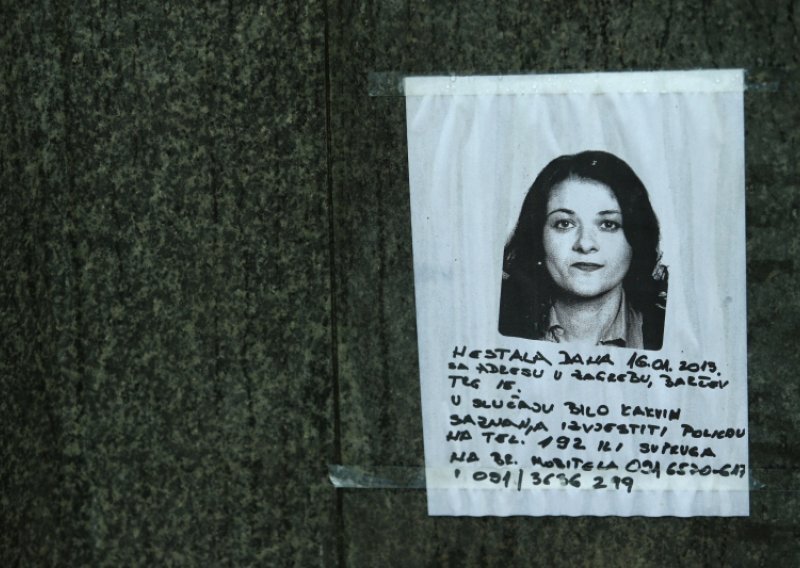 NESTALA DANA 16.01.2013.
SA ADRESU U ZAGREBU,
TRG 15.
U SLUČAJU BILO KAKVIH
SAZNANJA IZVJESTITI POLICIJU
NA TEL. 192 ILI SUPRUGA
NA BR. MOBITELA 091 6520-617
I 091/3696 299